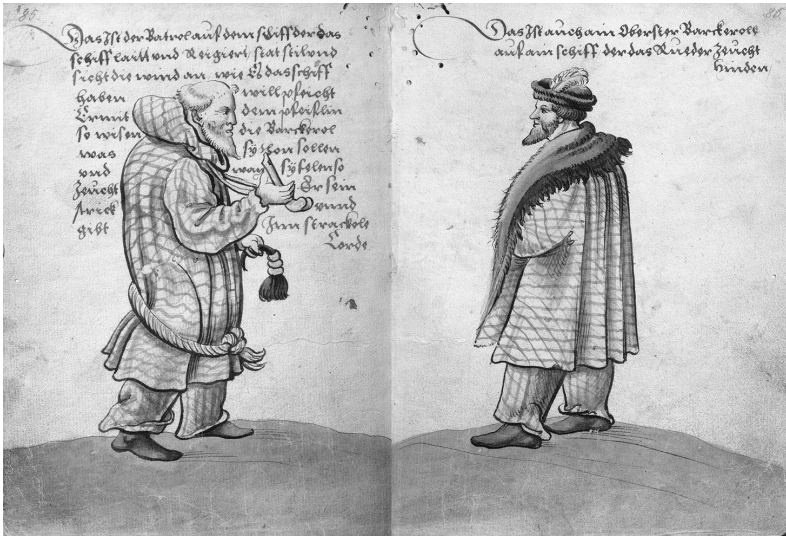 85
Das Ist der Batrol auf dem schiff der das
schiff laitt vnd Reigiert stat stil vnd
sicht die wind an, wie Er das schiff
haben will pfeicht
Er mit dem pfeifflin
so wisen die Barckerol
was sy thon sollen
vnd wan sy felen so
Zeucht Er sein
strick vnnd
gibt Inn strackole
Corde
Das Ist auch ain Oberster Barckerole
auf ain schiff der das Rueder Zeucht
hinden